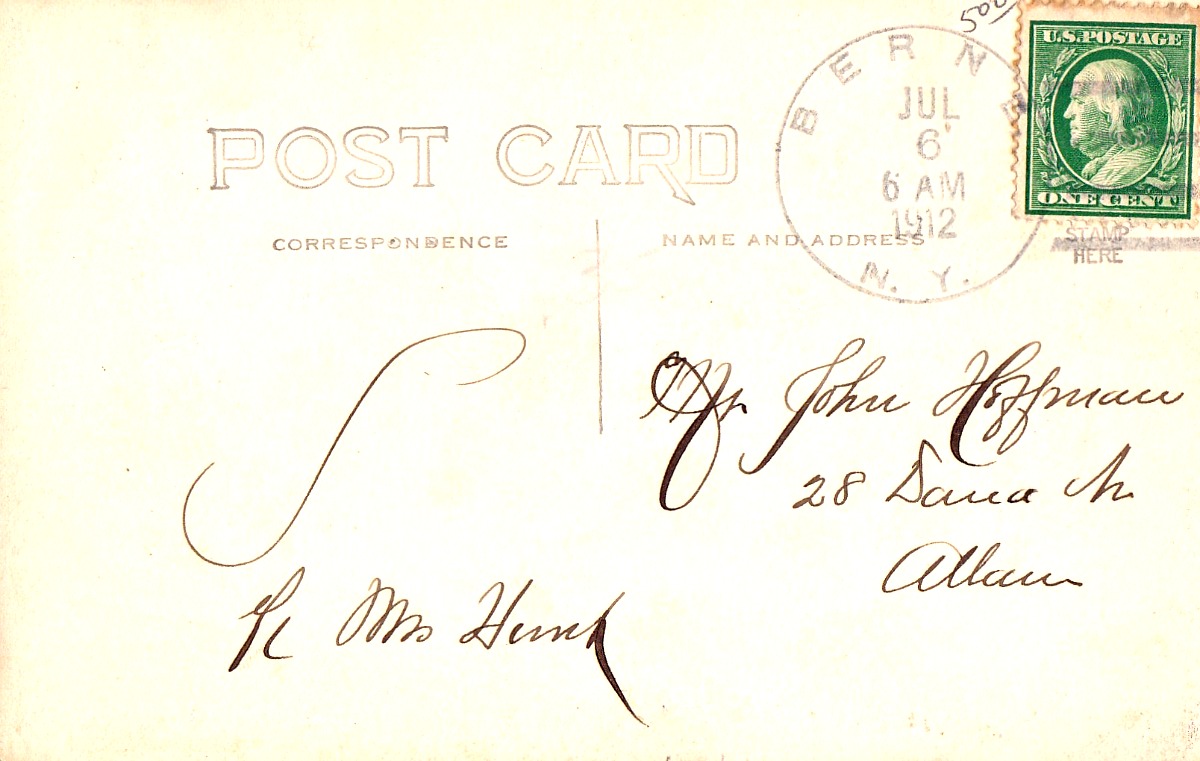 500
U.S. POSTAGE
BERNE
JUL
6
6 AM
1912
N. Y.
ONE CENT
POST CARD
CORRESPONDENCE
NAME AND ADDRESS
STAMP
HERE
Mr John Hoffman
28 Dana Av
Albany
Mrs